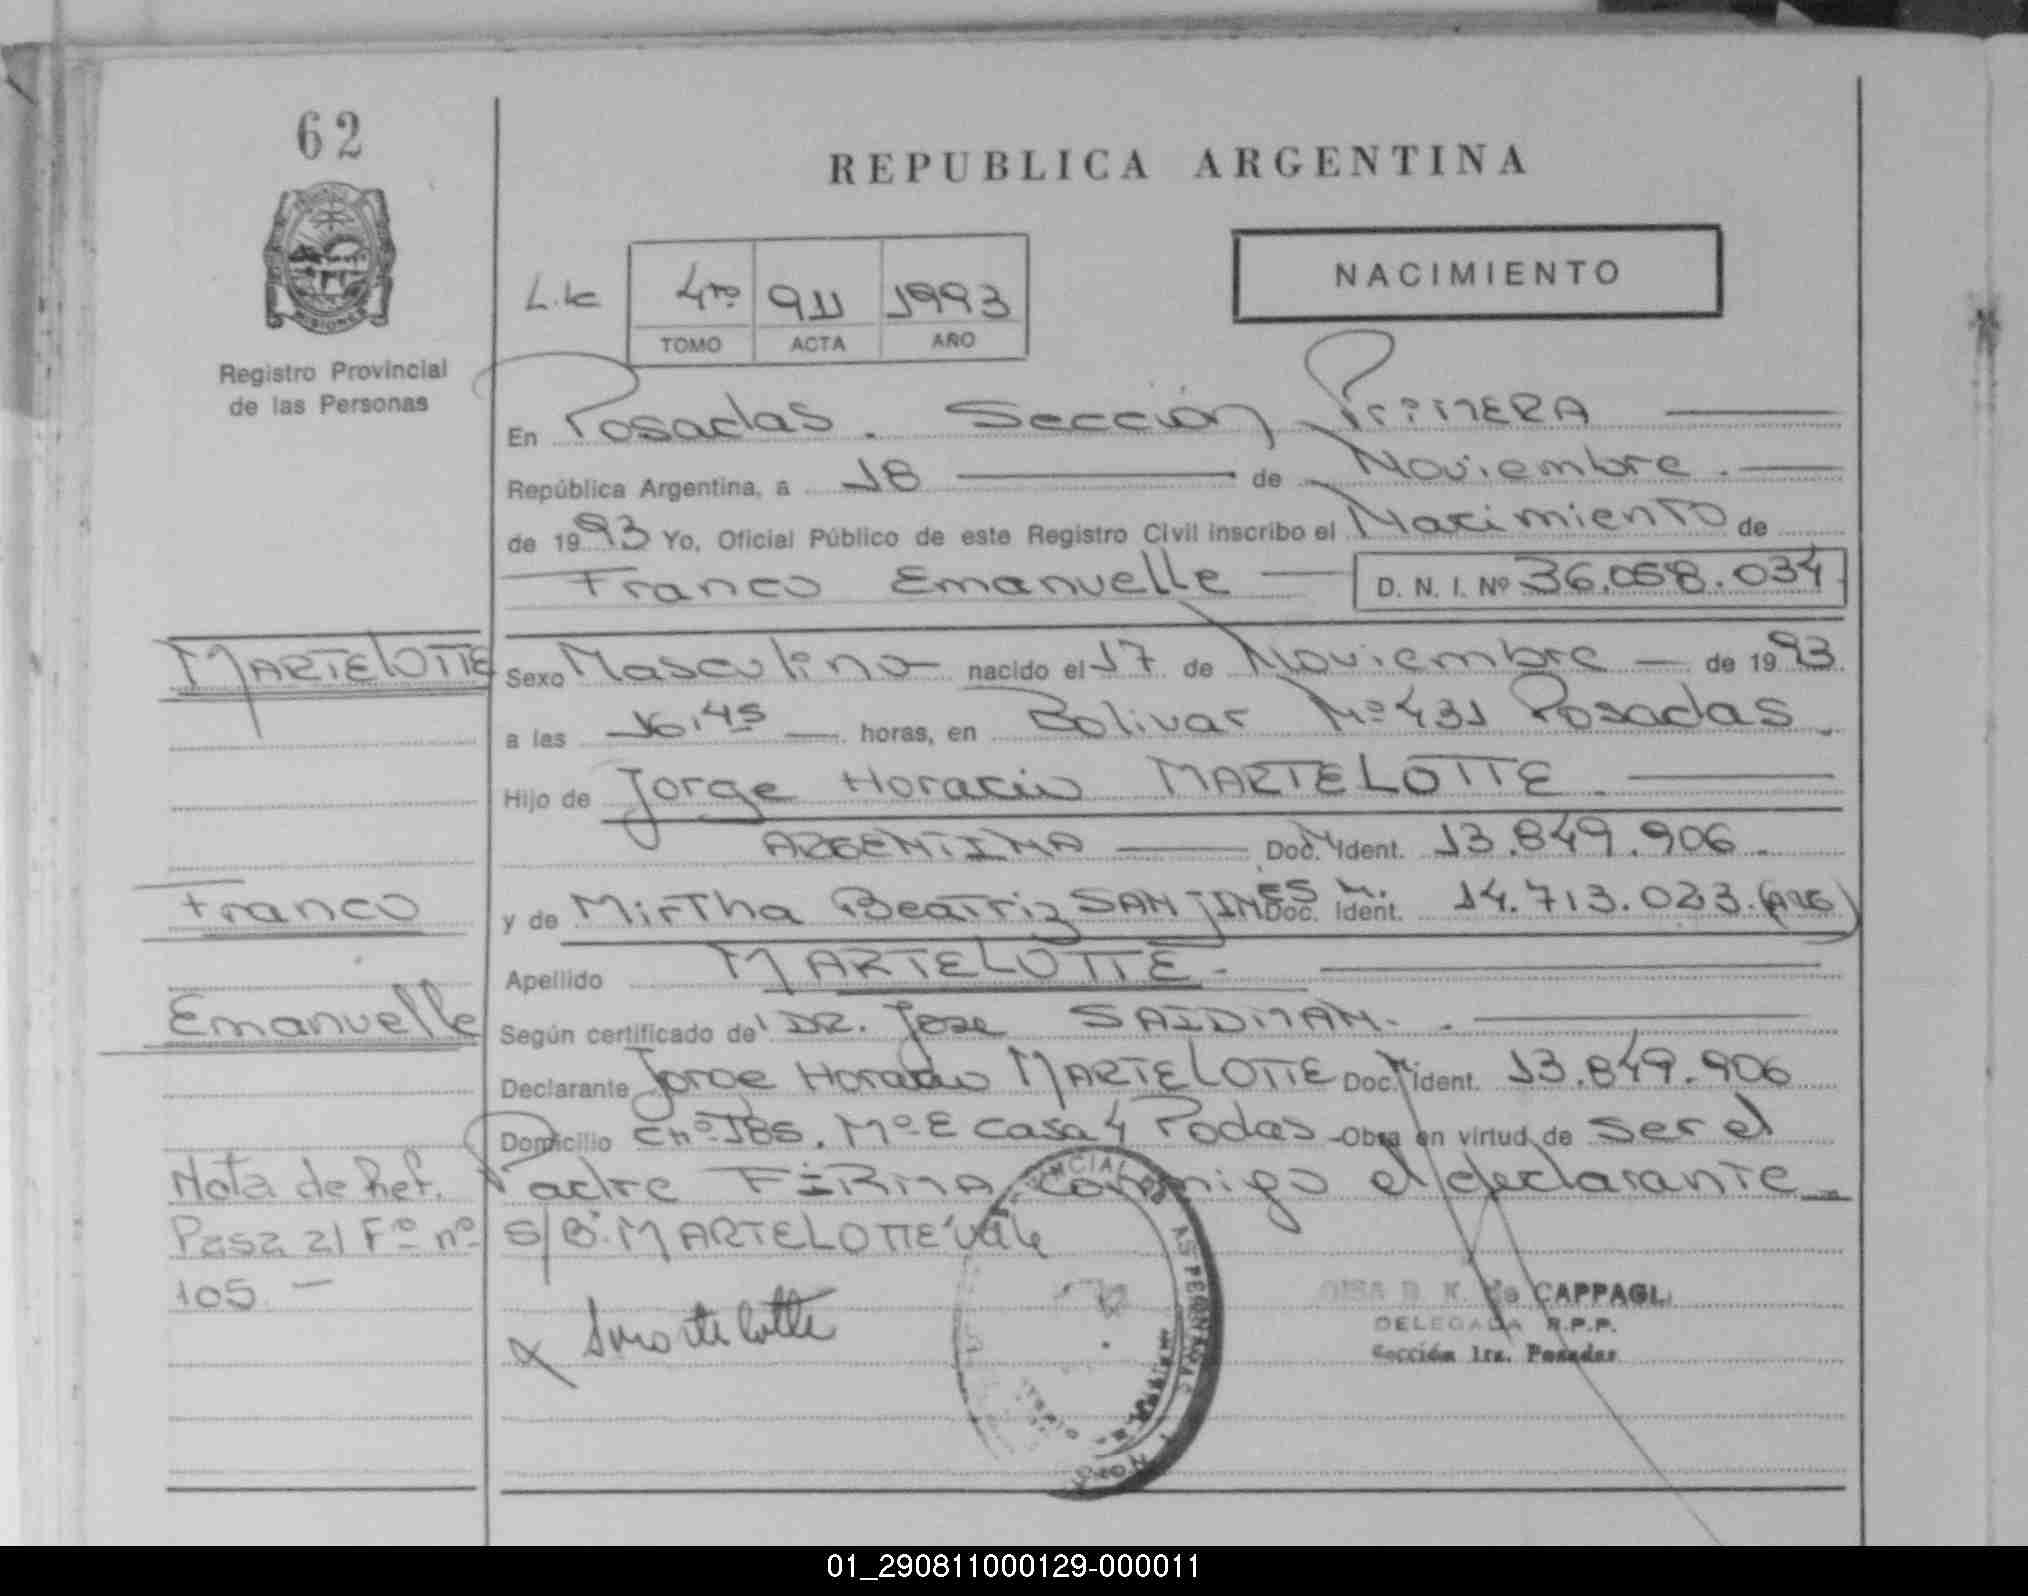 62
REPUBLICA ARGENTINA
MISIONES
Registro Provincial
de las Personas
4to 911 1993
TOMO ACTA AÑO
NACIMIENTO
En Posadas. Sección Primera
República Argentina, a 18 de Noviembre.
de 1993 Yo, Oficial Público de este Registro Civil inscribo el Nacimiento de
Franco Emanuelle D. N. I. Nº 36.058.034
MARTELOTTE
Sexo Masculino nacido el 17 de Noviembre de 1993
a las 16.45 horas, en Bolivar Nº 431 Posadas
Hijo de Jorge Horacio MARTELOTTE.
ARGENTINA Doc. Ident. 13.849.906.
Franco
y de Mirtha Beatriz SANJINES Doc. Ident. 14.713.023. (ARG)
Apellido MARTELOTTE.
Emanuelle
Según certificado de DR. Jose SAIDMAN.
Declarante Jorge Horacio MARTELOTTE Doc. Ident. 13.849.906
Domicilio Chº 185. Mº E casa 4 Podas Obra en virtud de ser el
Nota de Ref.
Padre FIRMA conmigo el declarante
Pasa al Fº nº
S/B: MARTELOTTE Vale
105
CAPPAGL
DELEGADA R.P.P.
Sección 1ra. Posadas
01_290811000129-000011